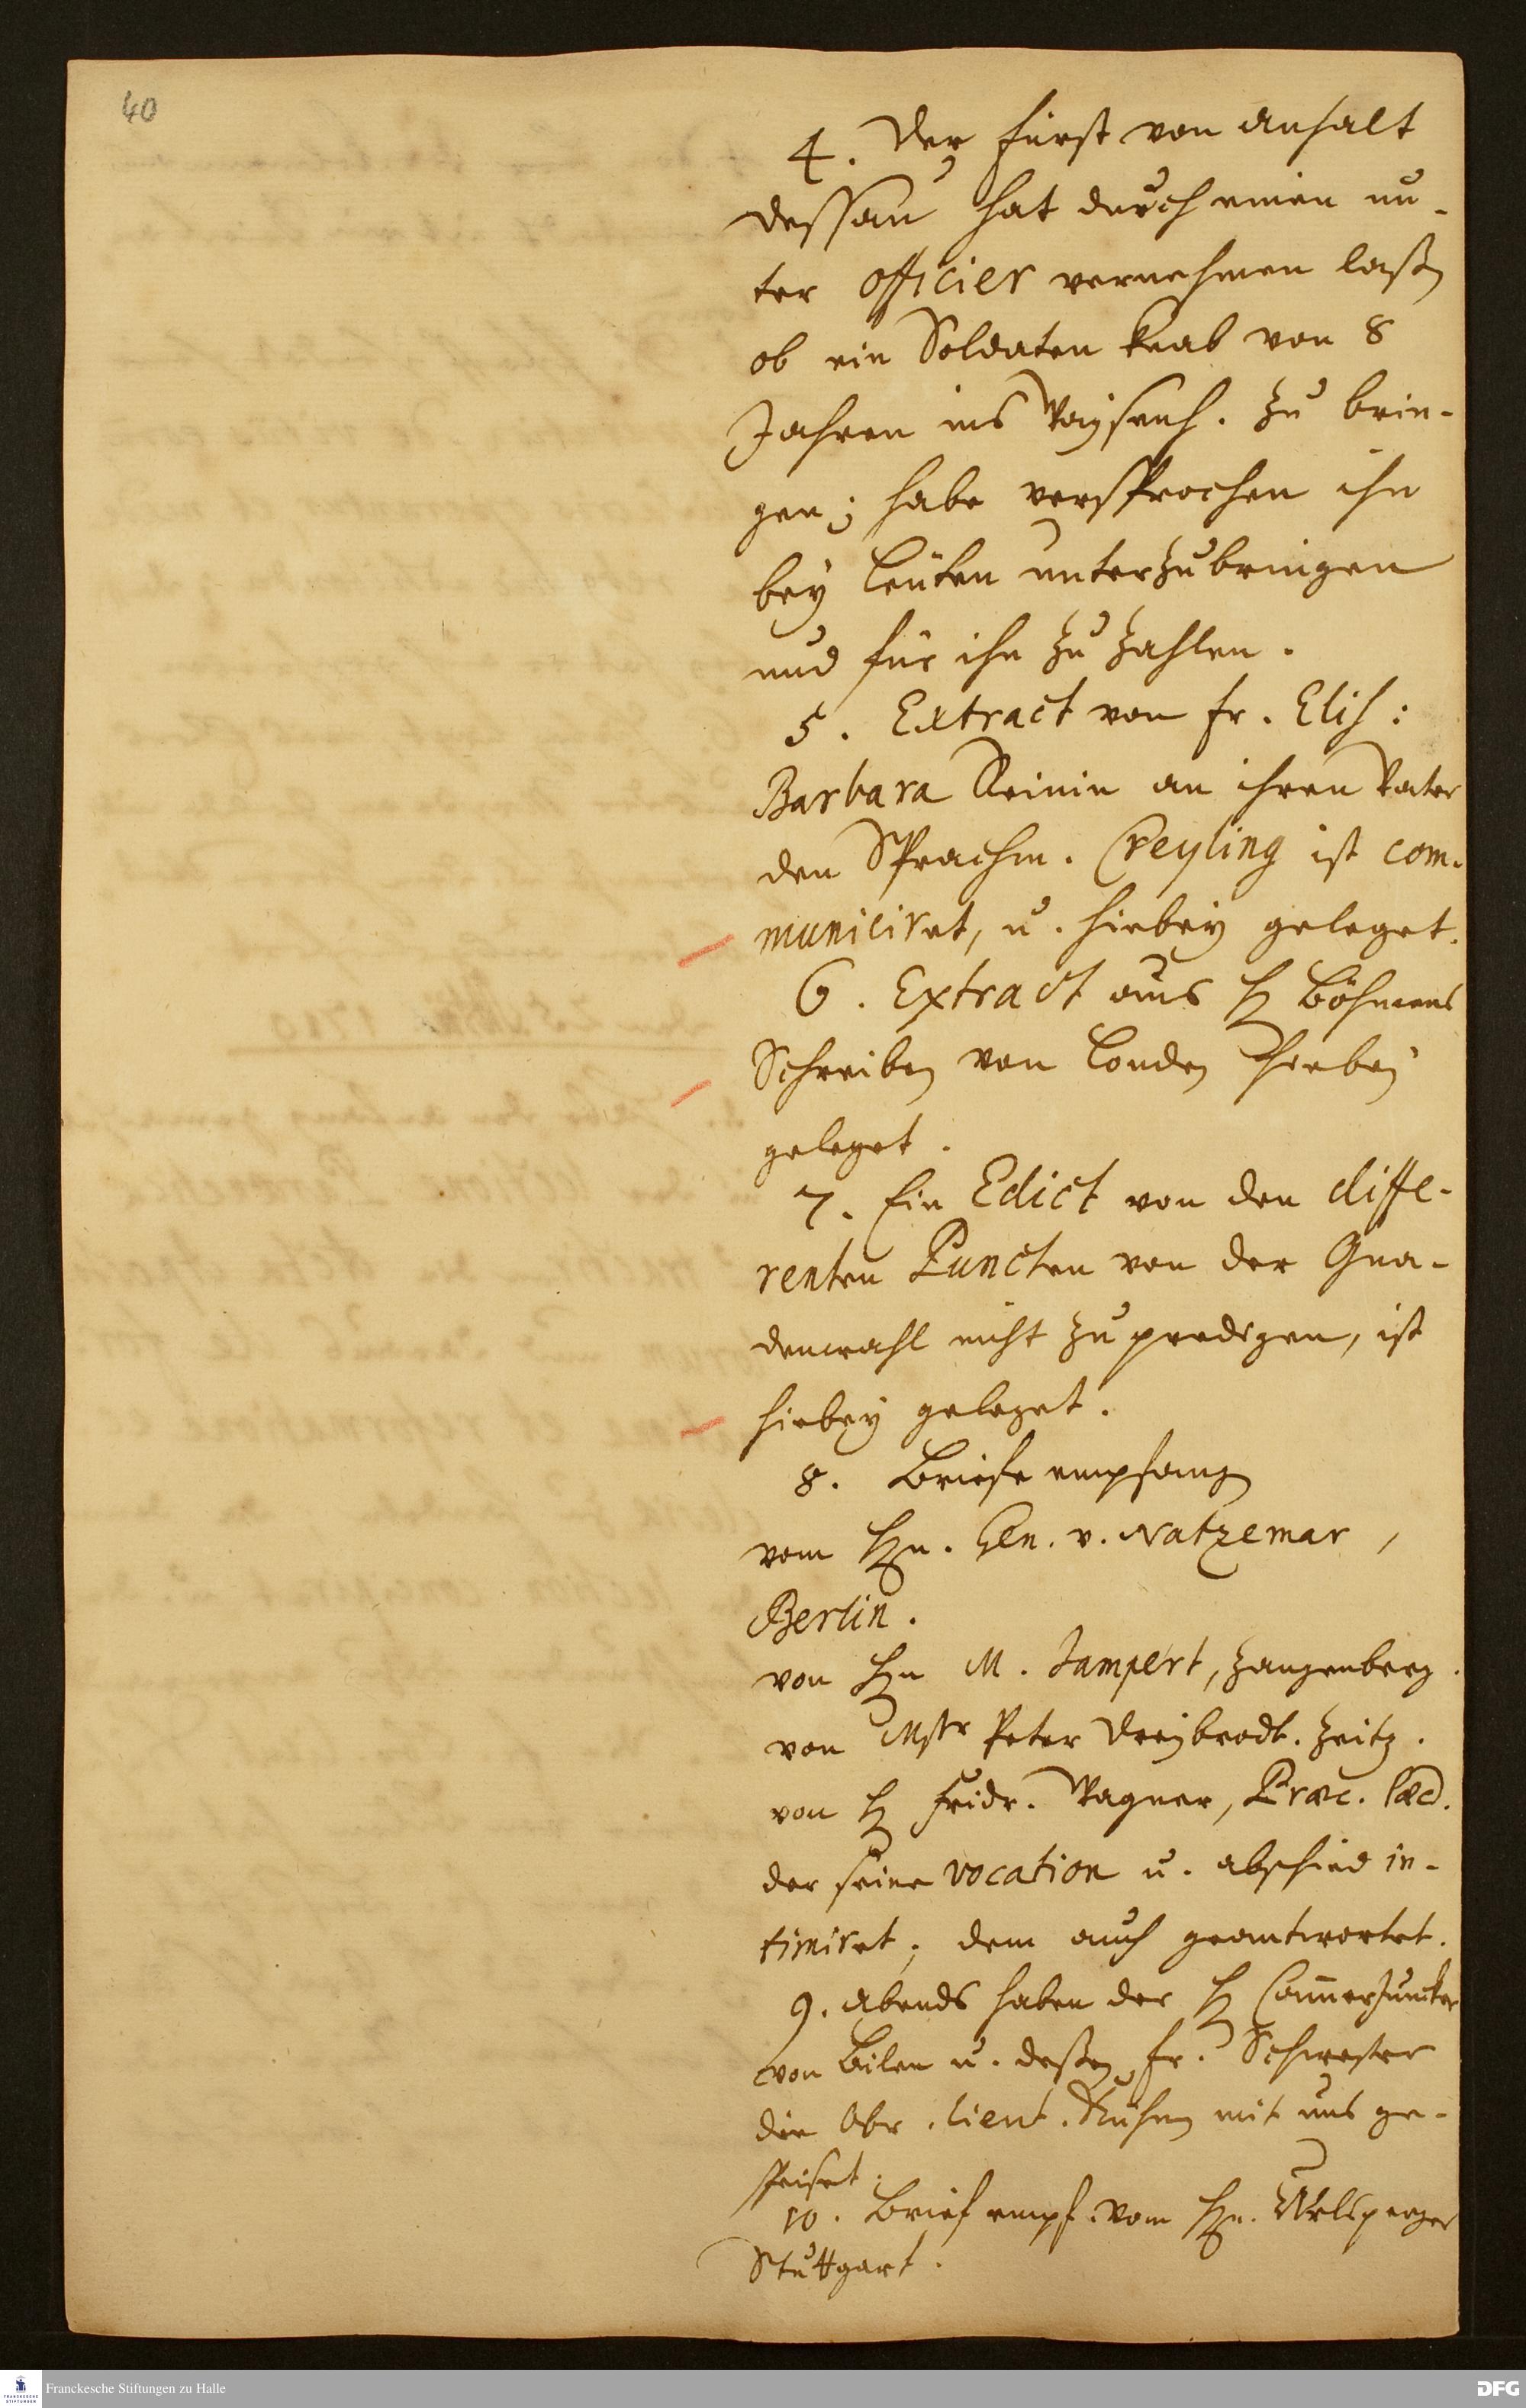 40
4. Der Fürst von Anhalt
Dessau hat durch einen un-
ter Officier vernehmen laßen
ob ein Soldaten Knab von 8
Jahren ins Waysenh. zu brin-
gen; habe versprochen ihn
bey Leuten unterzubringen
und für ihn zu zahlen.
5. Extract von Fr. Elis:
Barbara Keinin an ihren Vater
den Sprachm. Creyling ist com-
municiret, u. hiebey geleget.
6. Extract aus H Böhmens
Schreiben von Londen hiebey
geleget.
7. Ein Edict von den diffe-
renten Puncten von der Gna-
denwahl nicht zu predigen, ist
hiebey geleget.
8. Briefe empfangen
vom Hn. Gen. v. Natzemar,
Berlin.
von Hn M. Lampert, Zangenberg.
von Msr Peter Dreybrodt. Zeitz.
von H Fridr. Wagner, Præc. Pæd.
der seine vocation u. abschied in-
timiret; dem auch geantwortet.
9. Abends haben der H Cammerjuncker
von Bilen u. deßen Fr. Schwester
die Obr. Lieut. Kühen mit uns ge-
speiset.
10. Brief empf. vom Hn. Urlsperger
Stuttgart.
Franckesche Stiftungen zu Halle
FRANCKESCHE STIFTUNGEN
DFG